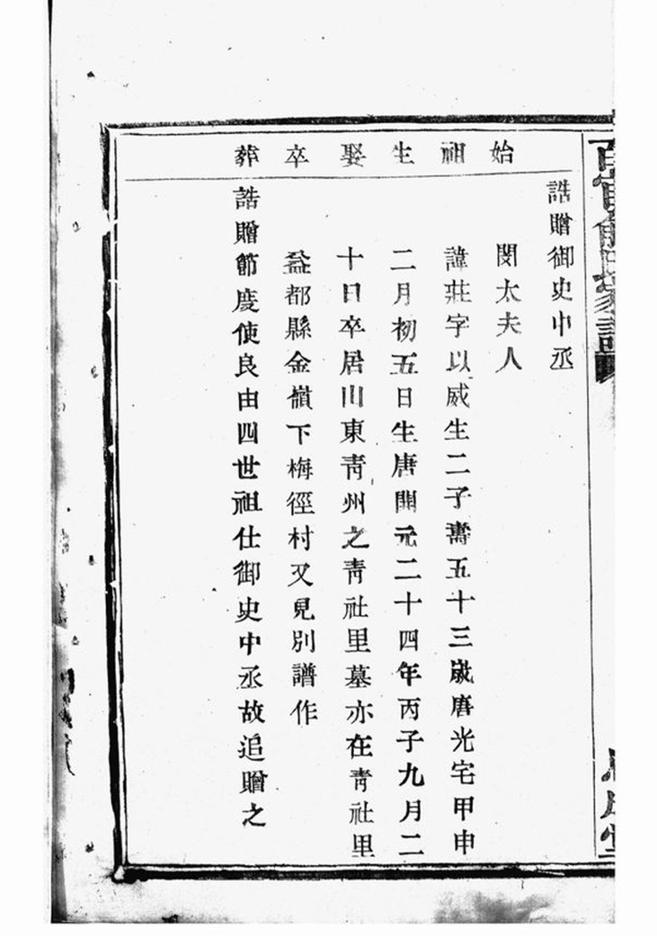 始祖生娶卒葬
誥贈御史中丞
閔太夫人
諱莊字以威生二子壽五十三歲唐光宅甲申
二月初五日生唐開元二十四年丙子九月二
十日卒居山東靑州之靑社里墓亦在靑社里
益都縣金嶺下梅徑村又見別譜作
誥贈節度使良由四世祖仕御史中丞故追贈之